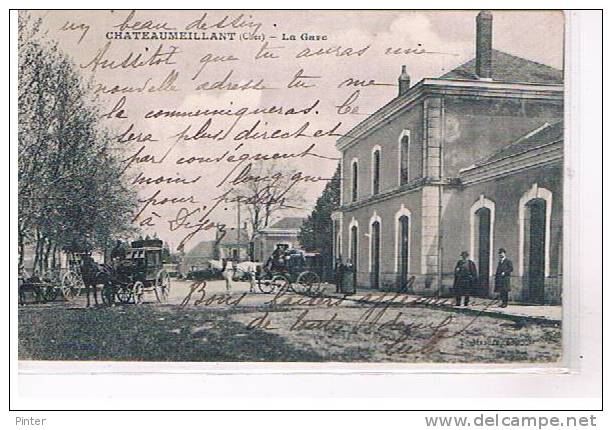 un beau dessin
CHATEAUMEILLANT (Cher) — La Gare
Aussitot que tu auras une
nouvelle adresse tu me
le communiqueras. Ce
sera plus direct et
par conséquent
moins long que
pour passer
à Dijon
Bonne affection
de toute
Pinter
www.delcampe.net